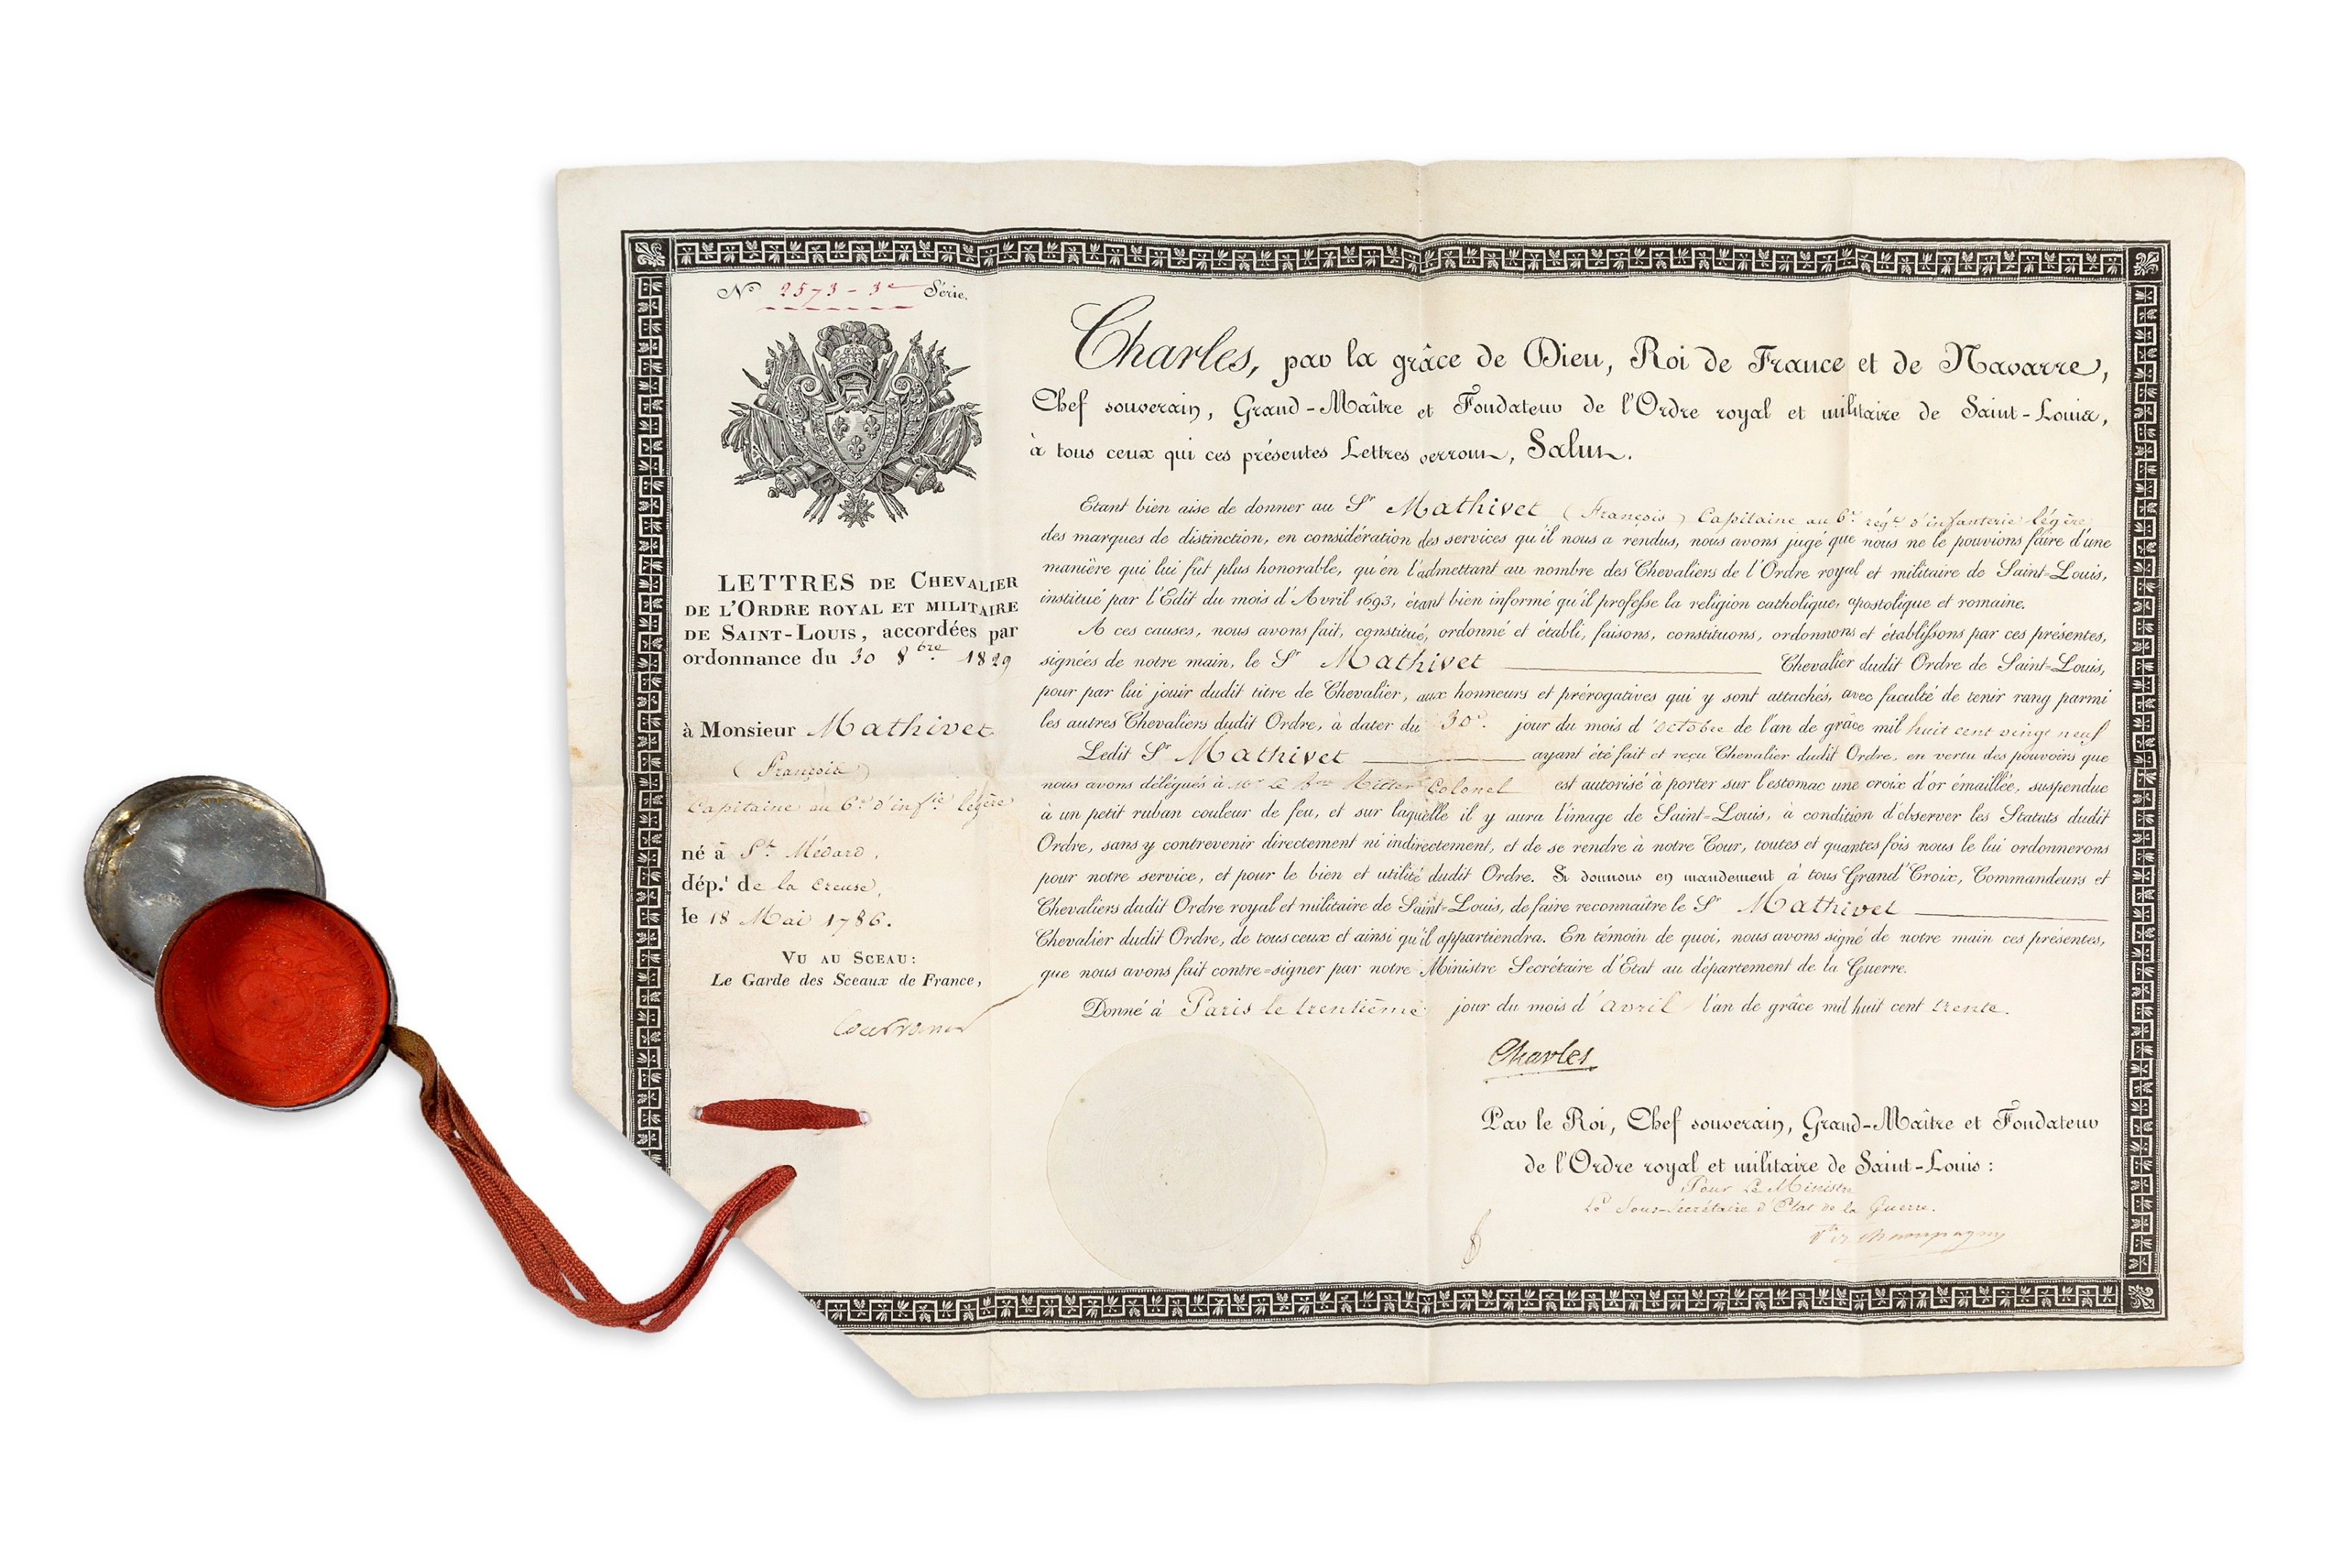 N.º 2573 - 3e Série.
LETTRES DE CHEVALIER
DE L'ORDRE ROYAL ET MILITAIRE
DE SAINT-LOUIS, accordées par
ordonnance du 30 8bre. 1829
à Monsieur Mathivet
(François)
Capitaine au 6e d'infie légère
né à St. Médard,
dép.t de la Creuse,
le 18 Mai 1786.
VU AU SCEAU:
Le Garde des Sceaux de France,
Charles, par la grâce de Dieu, Roi de France et de Navarre,
Chef souverain, Grand-Maître et Fondateur de l'Ordre royal et militaire de Saint-Louis,
à tous ceux qui ces présentes Lettres verront, Salut.
Etant bien aise de donner au Sr Mathivet (François) Capitaine au 6e. régt. d'infanterie légère
des marques de distinction, en considération des services qu'il nous a rendus, nous avons jugé que nous ne le pouvions faire d'une
manière qui lui fût plus honorable, qu'en l'admettant au nombre des Chevaliers de l'Ordre royal et militaire de Saint-Louis,
institué par l'Edit du mois d'Avril 1693, étant bien informé qu'il professe la religion catholique, apostolique et romaine.
A ces causes, nous avons fait, constitué, ordonné et établi, faisons, constituons, ordonnons et établissons par ces présentes,
signées de notre main, le Sr Mathivet Chevalier dudit Ordre de Saint-Louis,
pour par lui jouir dudit titre de Chevalier, aux honneurs et prérogatives qui y sont attachés, avec faculté de tenir rang parmi
les autres Chevaliers dudit Ordre, à dater du 30e. jour du mois d'octobre de l'an de grâce mil huit cent vingt neuf
Ledit Sr Mathivet ayant été fait et reçu Chevalier dudit Ordre, en vertu des pouvoirs que
nous avons délégués à Mr le Bon Ritter Colonel est autorisé à porter sur l'estomac une croix d'or émaillée, suspendue
à un petit ruban couleur de feu, et sur laquelle il y aura l'image de Saint-Louis, à condition d'observer les Statuts dudit
Ordre, sans y contrevenir directement ni indirectement, et de se rendre à notre Cour, toutes et quantes fois nous le lui ordonnerons
pour notre service, et pour le bien et utilité dudit Ordre. Si donnons en mandement à tous Grand'Croix, Commandeurs et
Chevaliers dudit Ordre royal et militaire de Saint-Louis, de faire reconnaître le Sr Mathivet
Chevalier dudit Ordre, de tous ceux et ainsi qu'il appartiendra. En témoin de quoi, nous avons signé de notre main ces présentes,
que nous avons fait contre-signer par notre Ministre Secrétaire d'Etat au département de la Guerre.
Donné à Paris le trentième jour du mois d'avril l'an de grâce mil huit cent trente.
Charles
Par le Roi, Chef souverain, Grand-Maître et Fondateur
de l'Ordre royal et militaire de Saint-Louis:
Pour Le Ministre
Le Sous-Secrétaire d'Etat de la Guerre.
Vte de Champagny